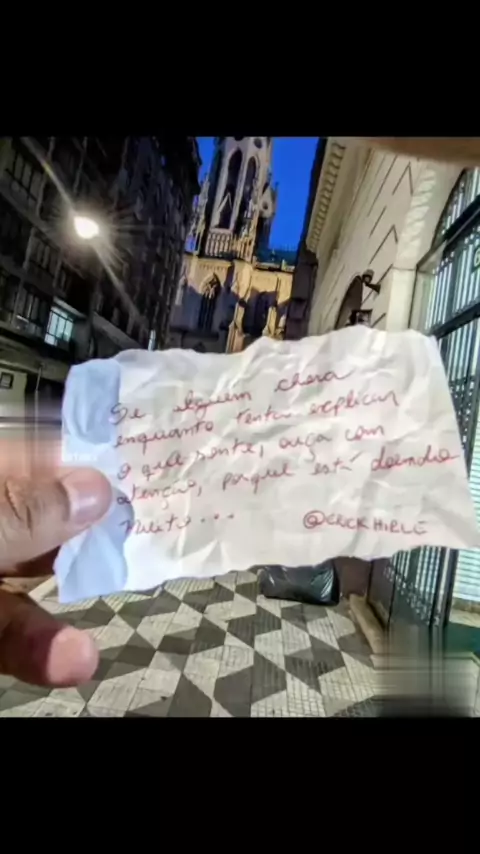 Se alguem chora
enquanto tenta explicar
o que sente, ouça com
atenção, porque está doendo
muito...
@ERCKHIRLE